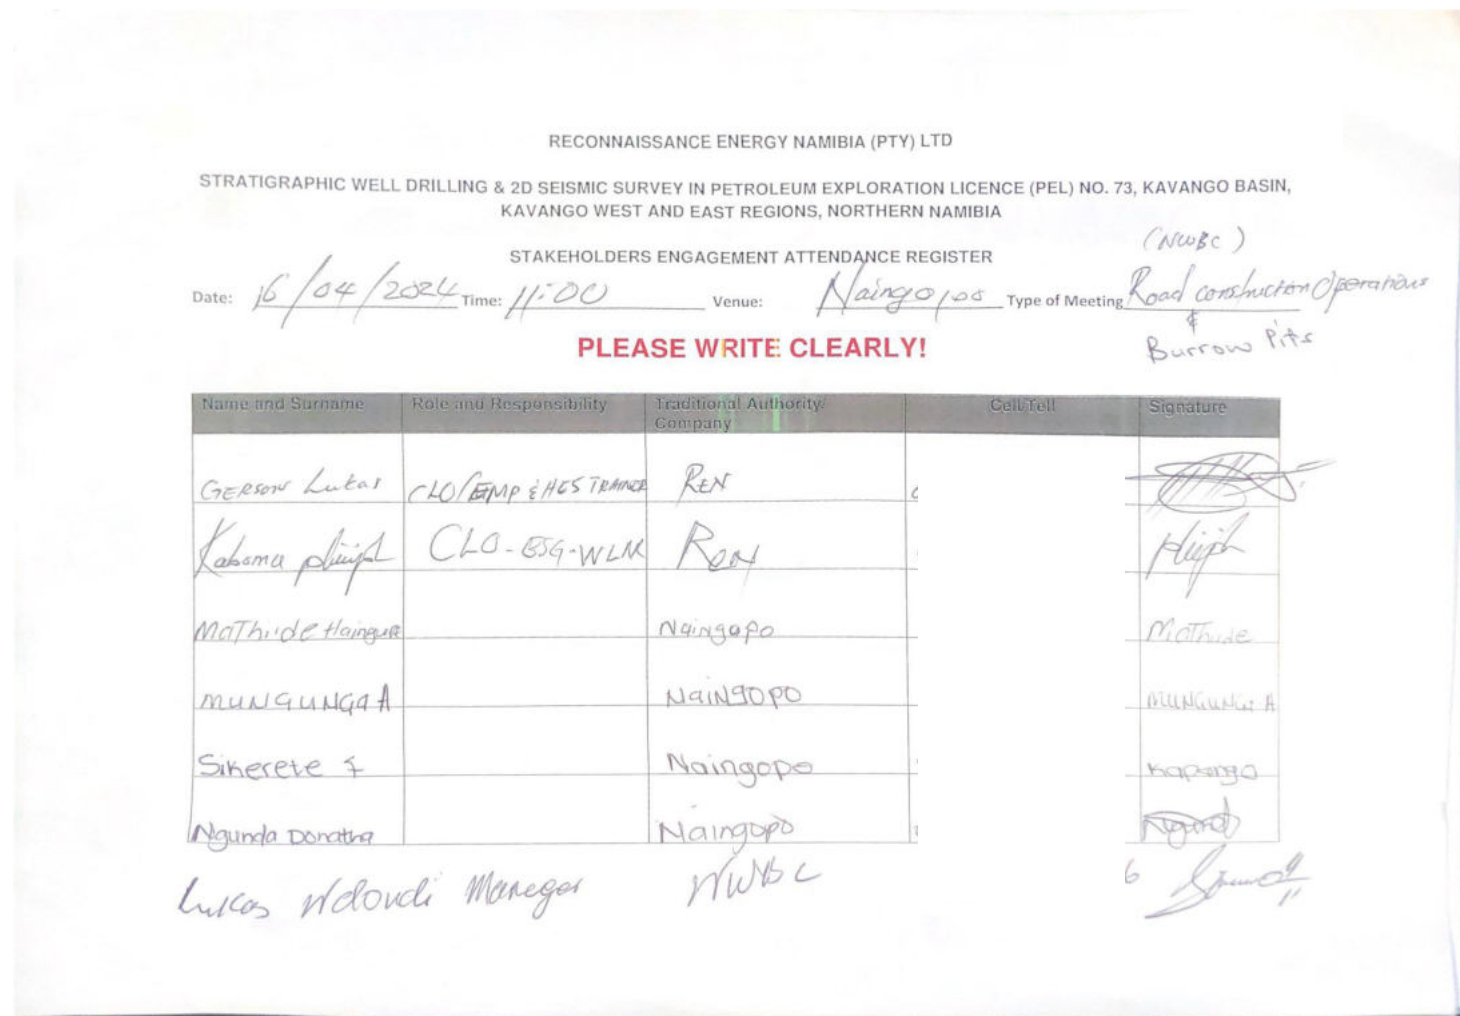 RECONNAISSANCE ENERGY NAMIBIA (PTY) LTD
STRATIGRAPHIC WELL DRILLING & 2D SEISMIC SURVEY IN PETROLEUM EXPLORATION LICENCE (PEL) NO. 73, KAVANGO BASIN,
KAVANGO WEST AND EAST REGIONS, NORTHERN NAMIBIA
(NWBC)
STAKEHOLDERS ENGAGEMENT ATTENDANCE REGISTER
Date: 16/04/2024 Time: 11:00 Venue: Naingopo Type of Meeting Road construction Operations
& Burrow Pits
PLEASE WRITE CLEARLY!
Name and Surname Role and Responsibility Traditional Authority/ Cell/Tell Signature
Company
GERSON Lukas CLO/EMP & HES TRAINER REN
Kaboma CLO-ESG-WLM REN
Mathilde Haingura Naingopo Mathilde
MUNGUNGA A Naingopo MUNGUNGA A
Sikerete F Naingopo Kapango
Ngunda Donatha Naingopo
Lukas Ndoudi Maneger NWBC 6